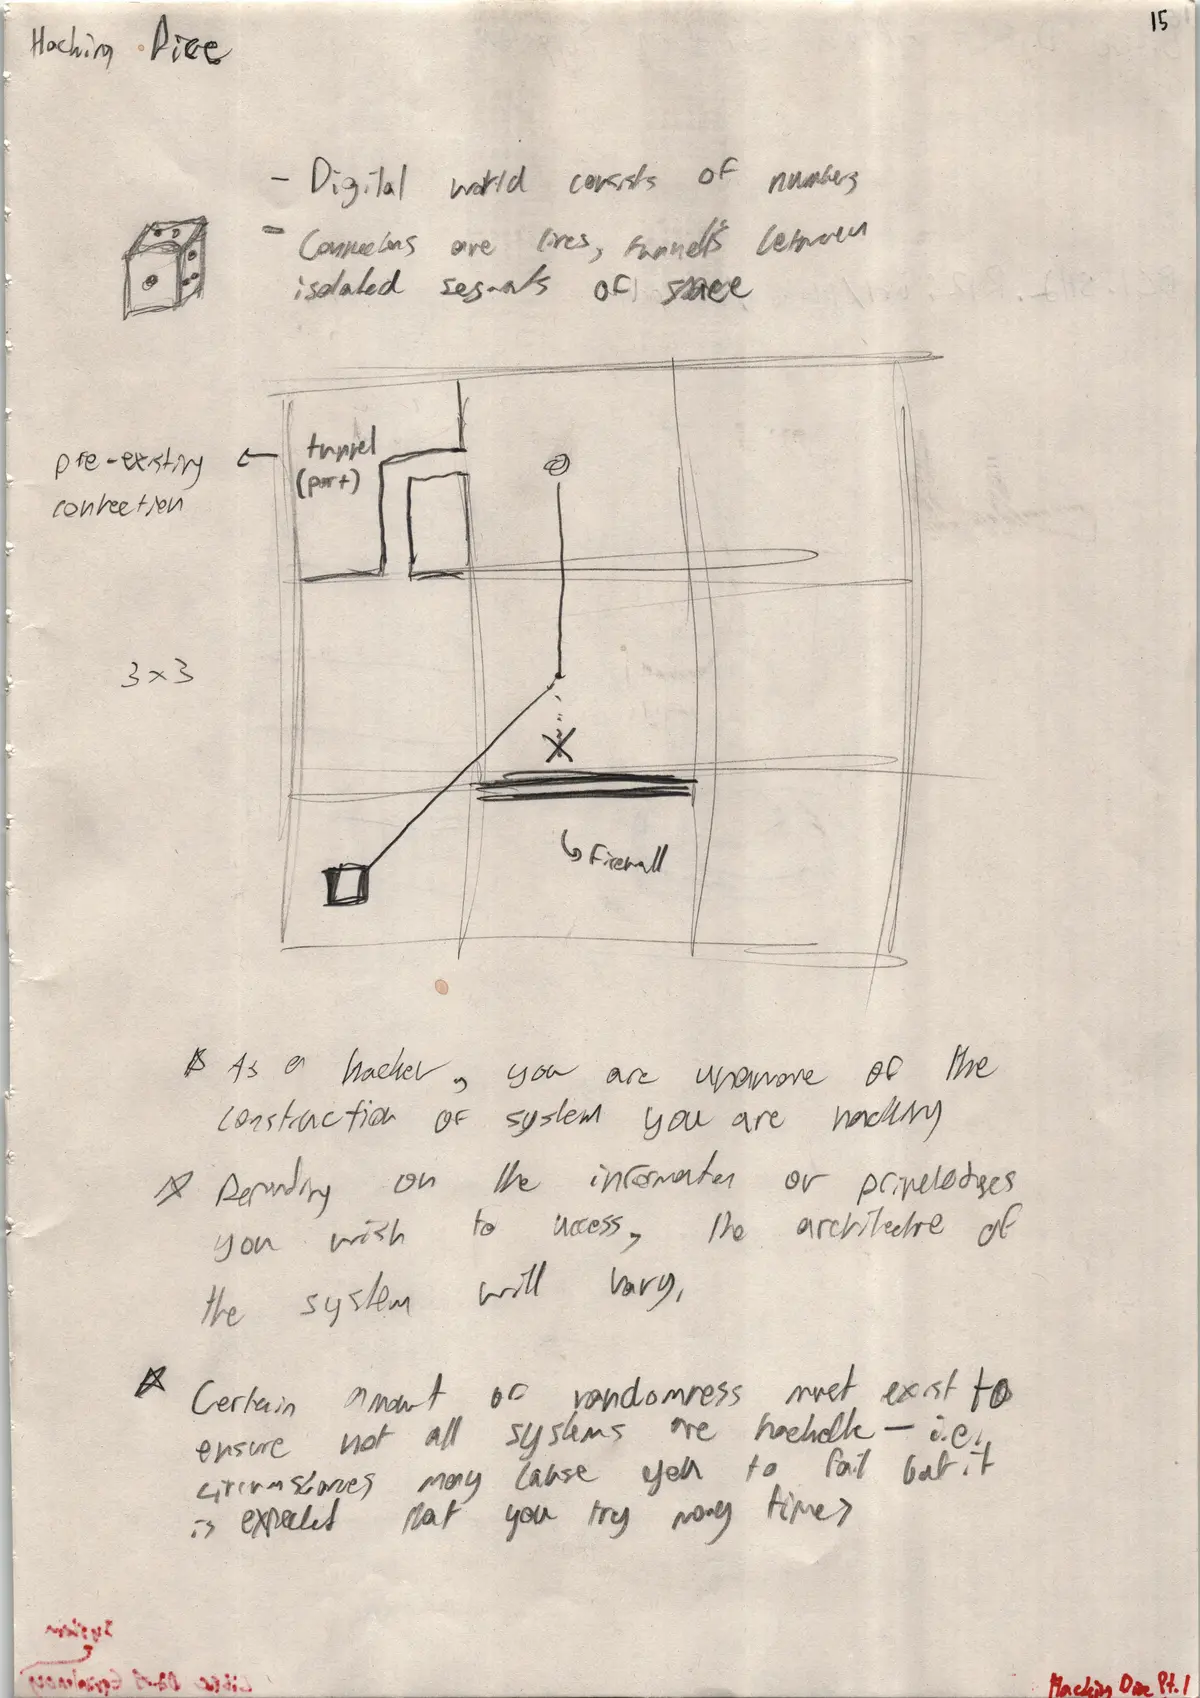 15
Hacking Dice
- Digital world consists of numbers
- Connections are lines, tunnels between
isolated segments of space
pre-existing
connection
tunnel
(port)
3x3
Firewall
As a hacker, you are unaware of the
construction of system you are hacking
Depending on the information or priveledges
you wish to access, the architecture of
the system will vary,
Certain amount of randomness must exist to
ensure not all systems are hackable - i.e.
circumstances may cause you to fail but it
is expected that you try many times
System
Equivalency
Hacking Dice Pt. 1